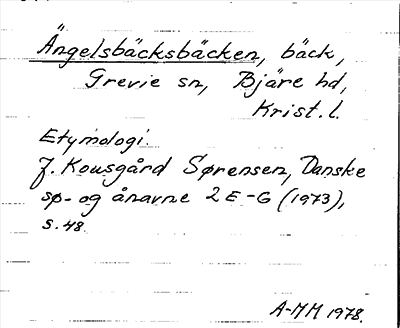 Ängelsbäcksbäcken, bäck,
Grevie sn, Bjäre hd,
Krist. l.
Etymologi.
J. Kousgård Sørensen, Danske
sø- og ånavne 2 E-G (1973),
s. 48.
A-MM 1978.